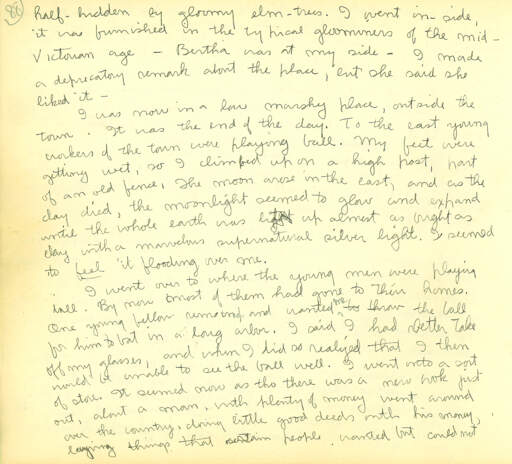 88
half-hidden by gloomy elm-trees. I went in-side,
it was furnished in the typical gloominess of the mid-
Victorian age – Bertha was at my side – I made
a deprecatory remark about the place, but she said she
liked it –
I was now in a low marshy place, outside the
town. It was the end of the day. To the east young
workers of the town were playing ball. My feet were
getting wet, so I climbed up on a high post, part
of an old fence. The moon arose in the east, and as the
day died, the moonlight seemed to glow and expand
until the whole earth was lit up almost as bright as
day with a marvelous supernatural silver light. I seemed
to feel it flooding over me.
I went over to where the young men were playing
ball. By now most of them had gone to their homes.
One young fellow remained and wanted me to throw the ball
for him to bat in a long arbor. I said I had better take
off my glasses, and when I did so realized that I then
would be unable to see the ball well. I went into a sort
of store. It seemed now as tho there was a new book just
out, about a man, with plenty of money went around
over the country, doing little good deeds with his money,
buying things that certain people wanted but could not